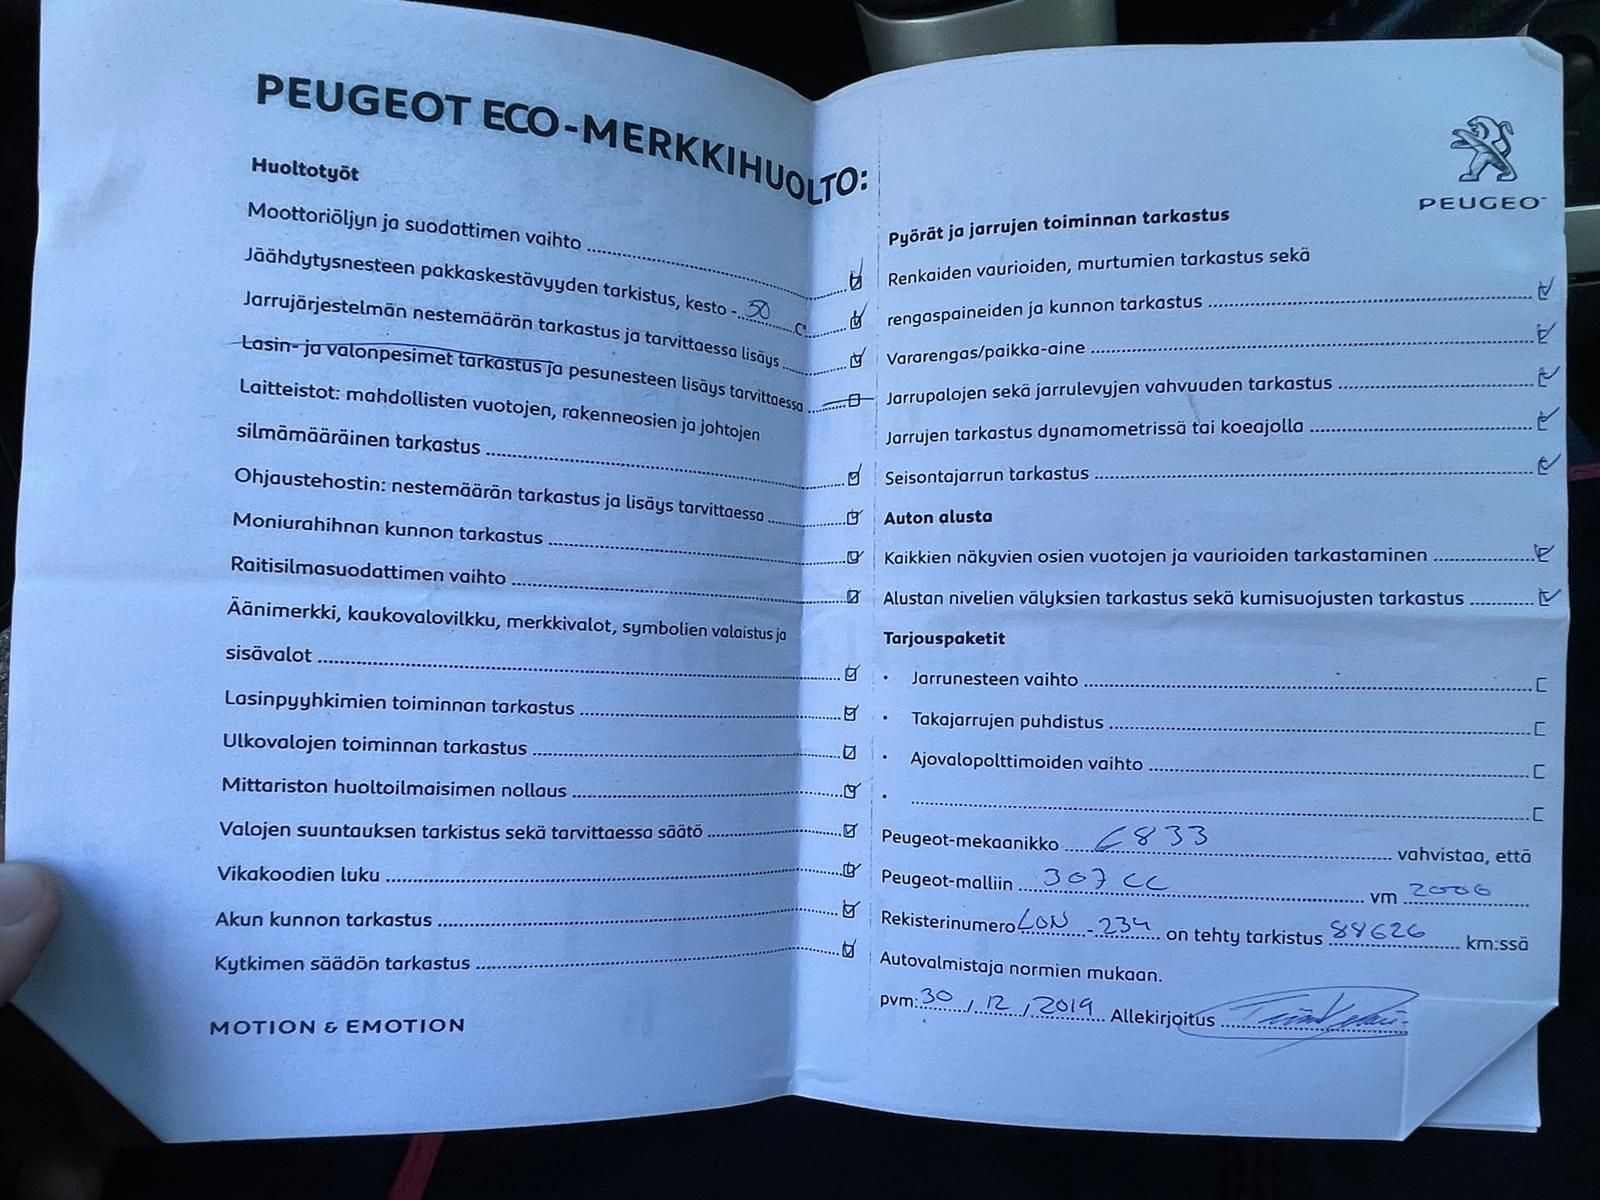 PEUGEOT ECO-MERKKIHUOLTO:
Huoltotyöt
Moottoriöljyn ja suodattimen vaihto
Jäähdytysnesteen pakkaskestävyyden tarkistus, kesto -50 C°
Jarrujärjestelmän nestemäärän tarkastus ja tarvittaessa lisäys
Lasin- ja valonpesimet tarkastus ja pesunesteen lisäys tarvittaessa
Laitteistot: mahdollisten vuotojen, rakenneosien ja johtojen
silmämääräinen tarkastus
Ohjaustehostin: nestemäärän tarkastus ja lisäys tarvittaessa
Moniurahihnan kunnon tarkastus
Raitisilmasuodattimen vaihto
Äänimerkki, kaukovalovilkku, merkkivalot, symbolien valaistus ja
sisävalot
Lasinpyyhkimien toiminnan tarkastus
Ulkovalojen toiminnan tarkastus
Mittariston huoltoilmaisimen nollaus
Valojen suuntauksen tarkistus sekä tarvittaessa säätö
Vikakoodien luku
Akun kunnon tarkastus
Kytkimen säädön tarkastus
MOTION & EMOTION
PEUGEO
Pyörät ja jarrujen toiminnan tarkastus
Renkaiden vaurioiden, murtumien tarkastus sekä
rengaspaineiden ja kunnon tarkastus
Vararengas/paikka-aine
Jarrupalojen sekä jarrulevyjen vahvuuden tarkastus
Jarrujen tarkastus dynamometrissä tai koeajolla
Seisontajarrun tarkastus
Auton alusta
Kaikkien näkyvien osien vuotojen ja vaurioiden tarkastaminen
Alustan nivelien välyksien tarkastus sekä kumisuojusten tarkastus
Tarjouspaketit
• Jarrunesteen vaihto
• Takajarrujen puhdistus
• Ajovalopolttimoiden vaihto
•
Peugeot-mekaanikko 6833 vahvistaa, että
Peugeot-malliin 307 CC vm 2006
Rekisterinumero LON - 234 on tehty tarkistus 88626 km:ssä
Autovalmistaja normien mukaan.
pvm: 30 / 12 / 2019 Allekirjoitus